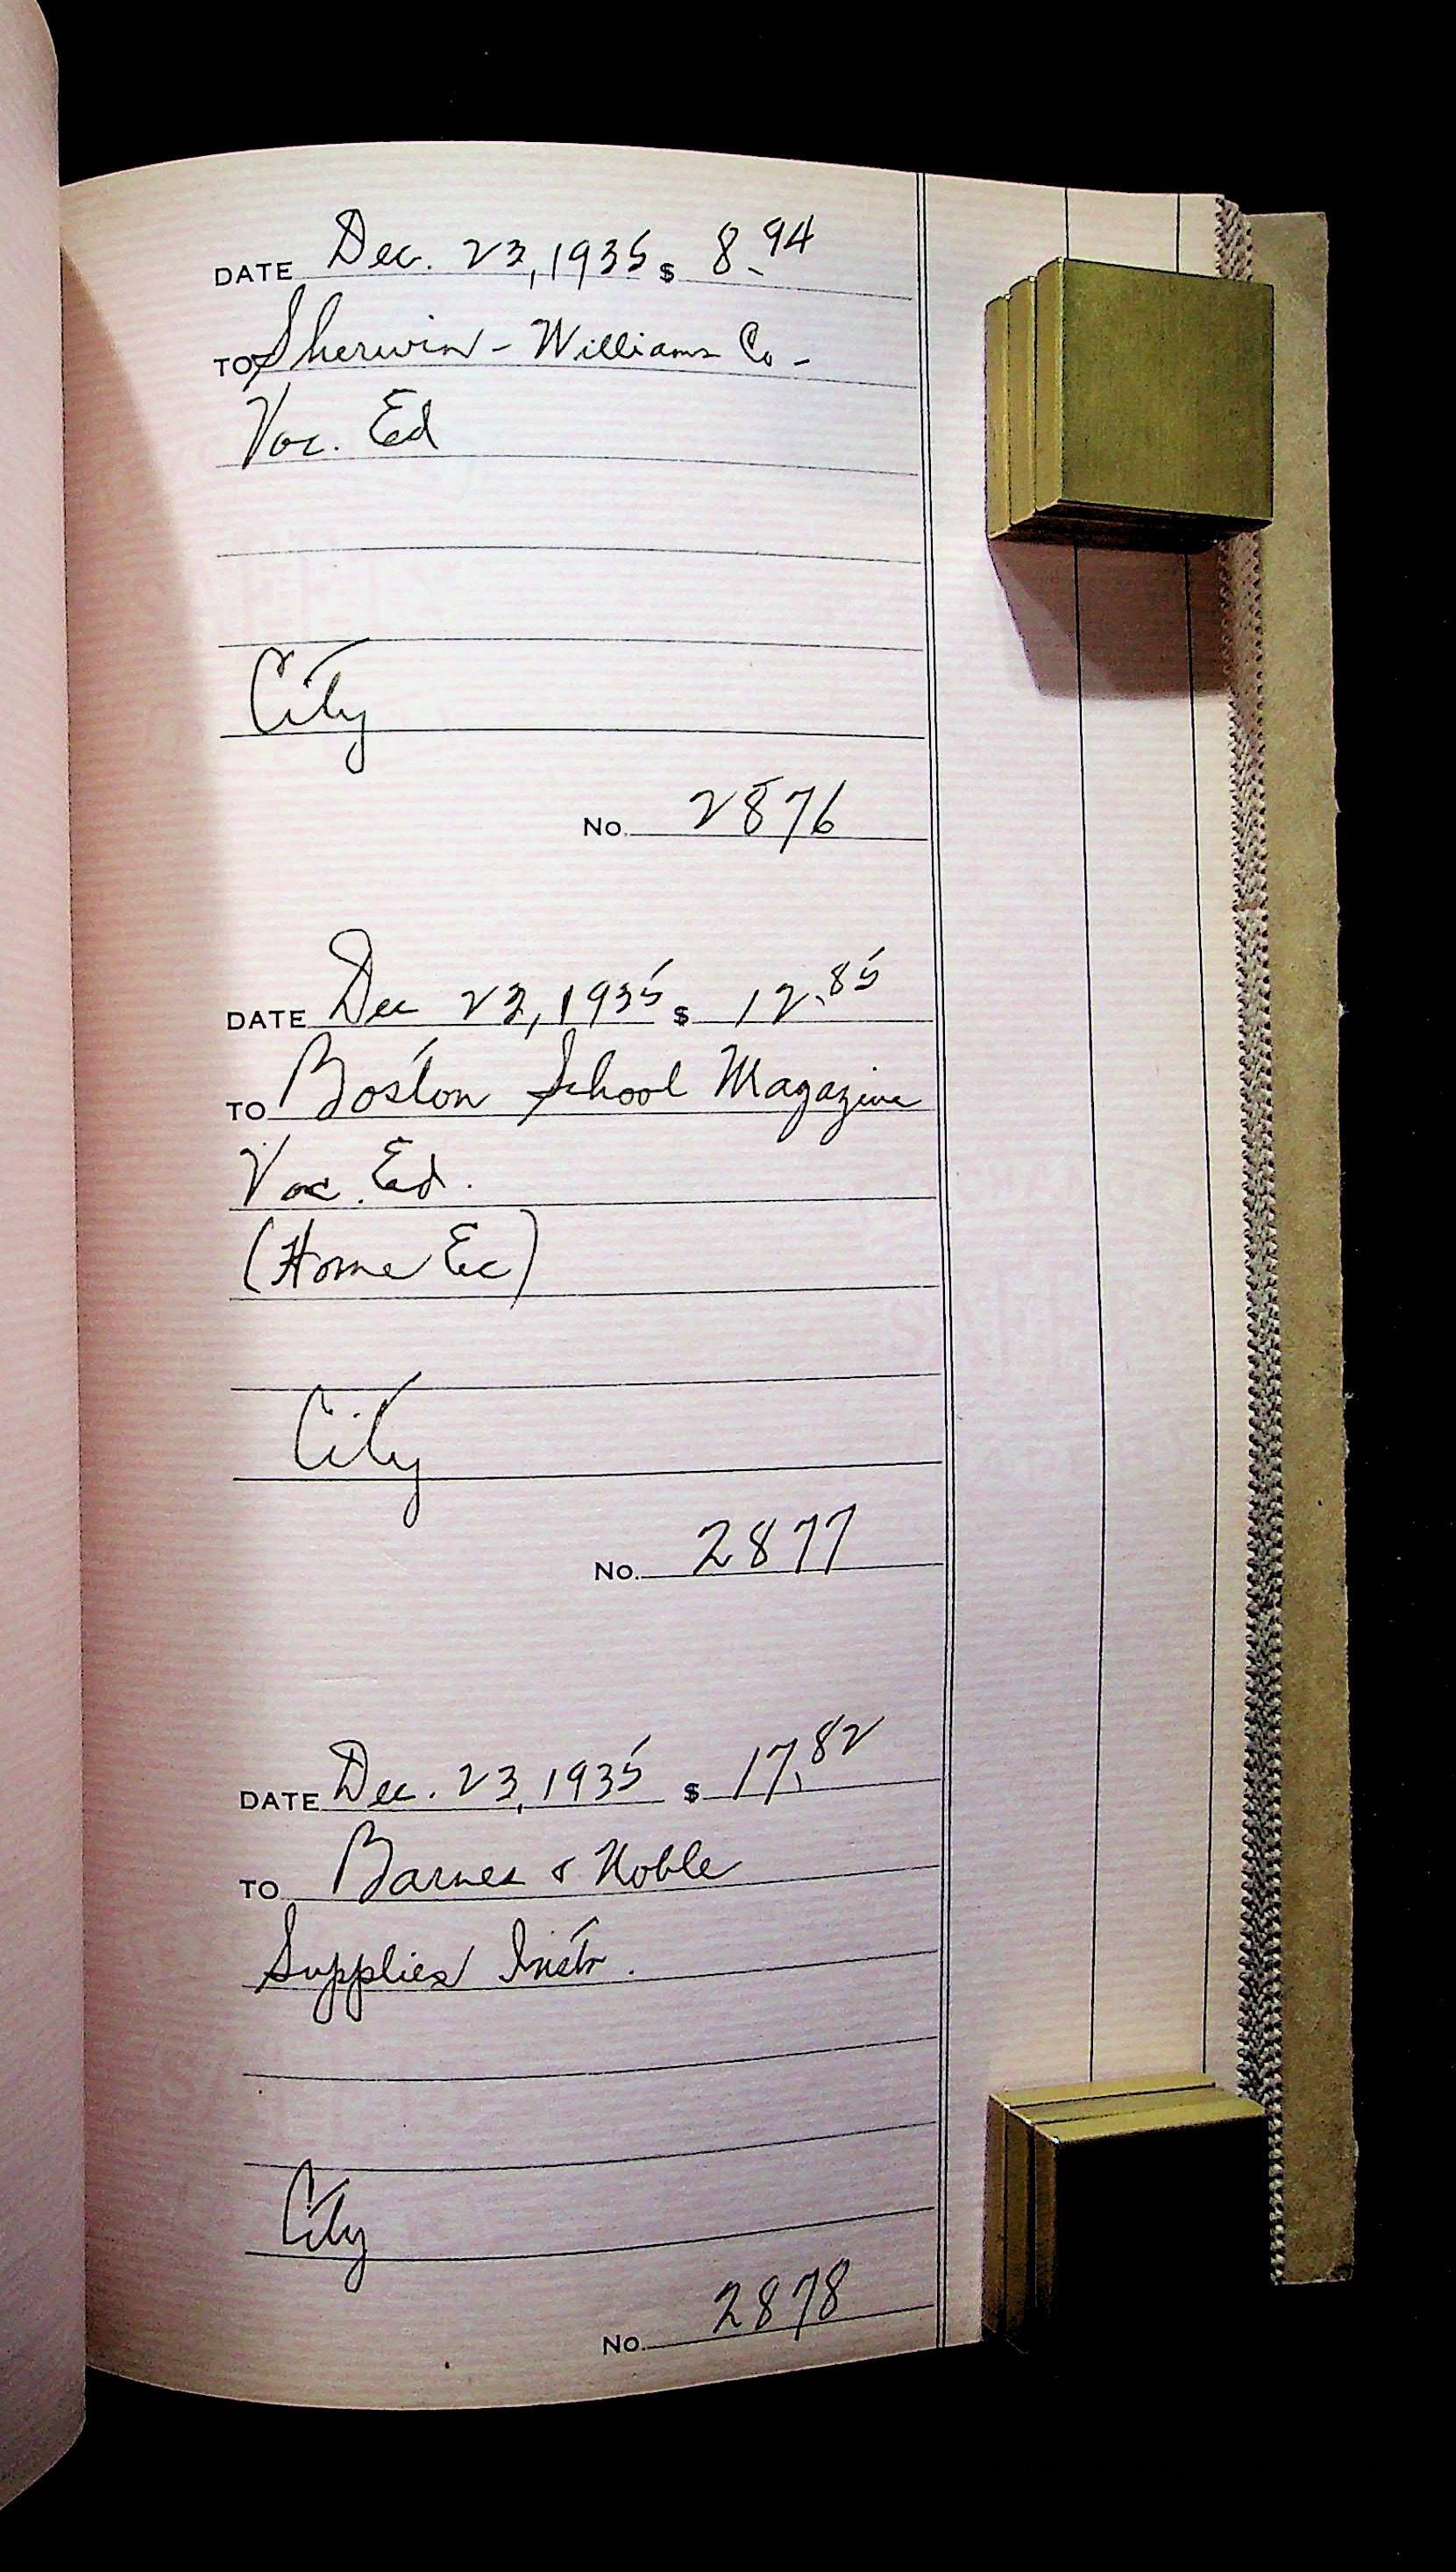 DATE Dec. 23, 1935 $ 8.94
TO Sherwin-Williams Co-
Voc. Ed
City
No. 2876
DATE Dec 23, 1935 $ 12.85
TO Boston School Magazine
Voc. Ed.
(Home Ec)
City
No. 2877
DATE Dec. 23, 1935 $ 17.82
TO Barnes & Noble
Supplies Instr.
City
No. 2878